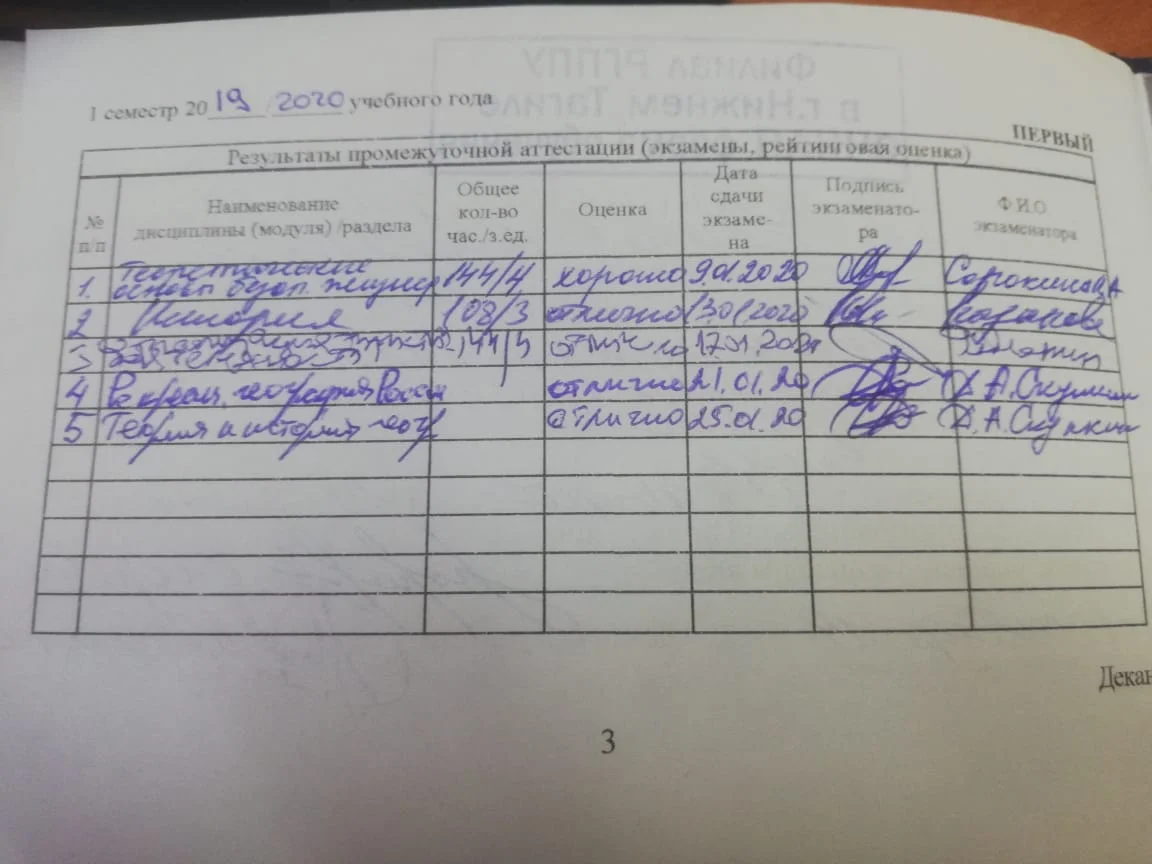 Филиал РГППУ
в г.Нижнем Тагиле
I семестр 2019/2020 учебного года
ПЕРВЫЙ
Результаты промежуточной аттестации (экзамены, рейтинговая оценка)
№ п/п Наименование дисциплины (модуля) /раздела Общее кол-во час./з.ед. Оценка Дата сдачи экзаме-на Подпись экзаменато-ра Ф.И.О. экзаменатора
1. Теоретические основы безоп. 144/4 хорошо 9.01.2020 Сорокина
2 История 108/3 отлично 13012020 Казакова
3 144/4 отлично 17.01.
4 география России отлично 21.01.20 А.Скупкин
5 Теория и история геогр отлично 25.01.20 А.Скупкин
Декан
3